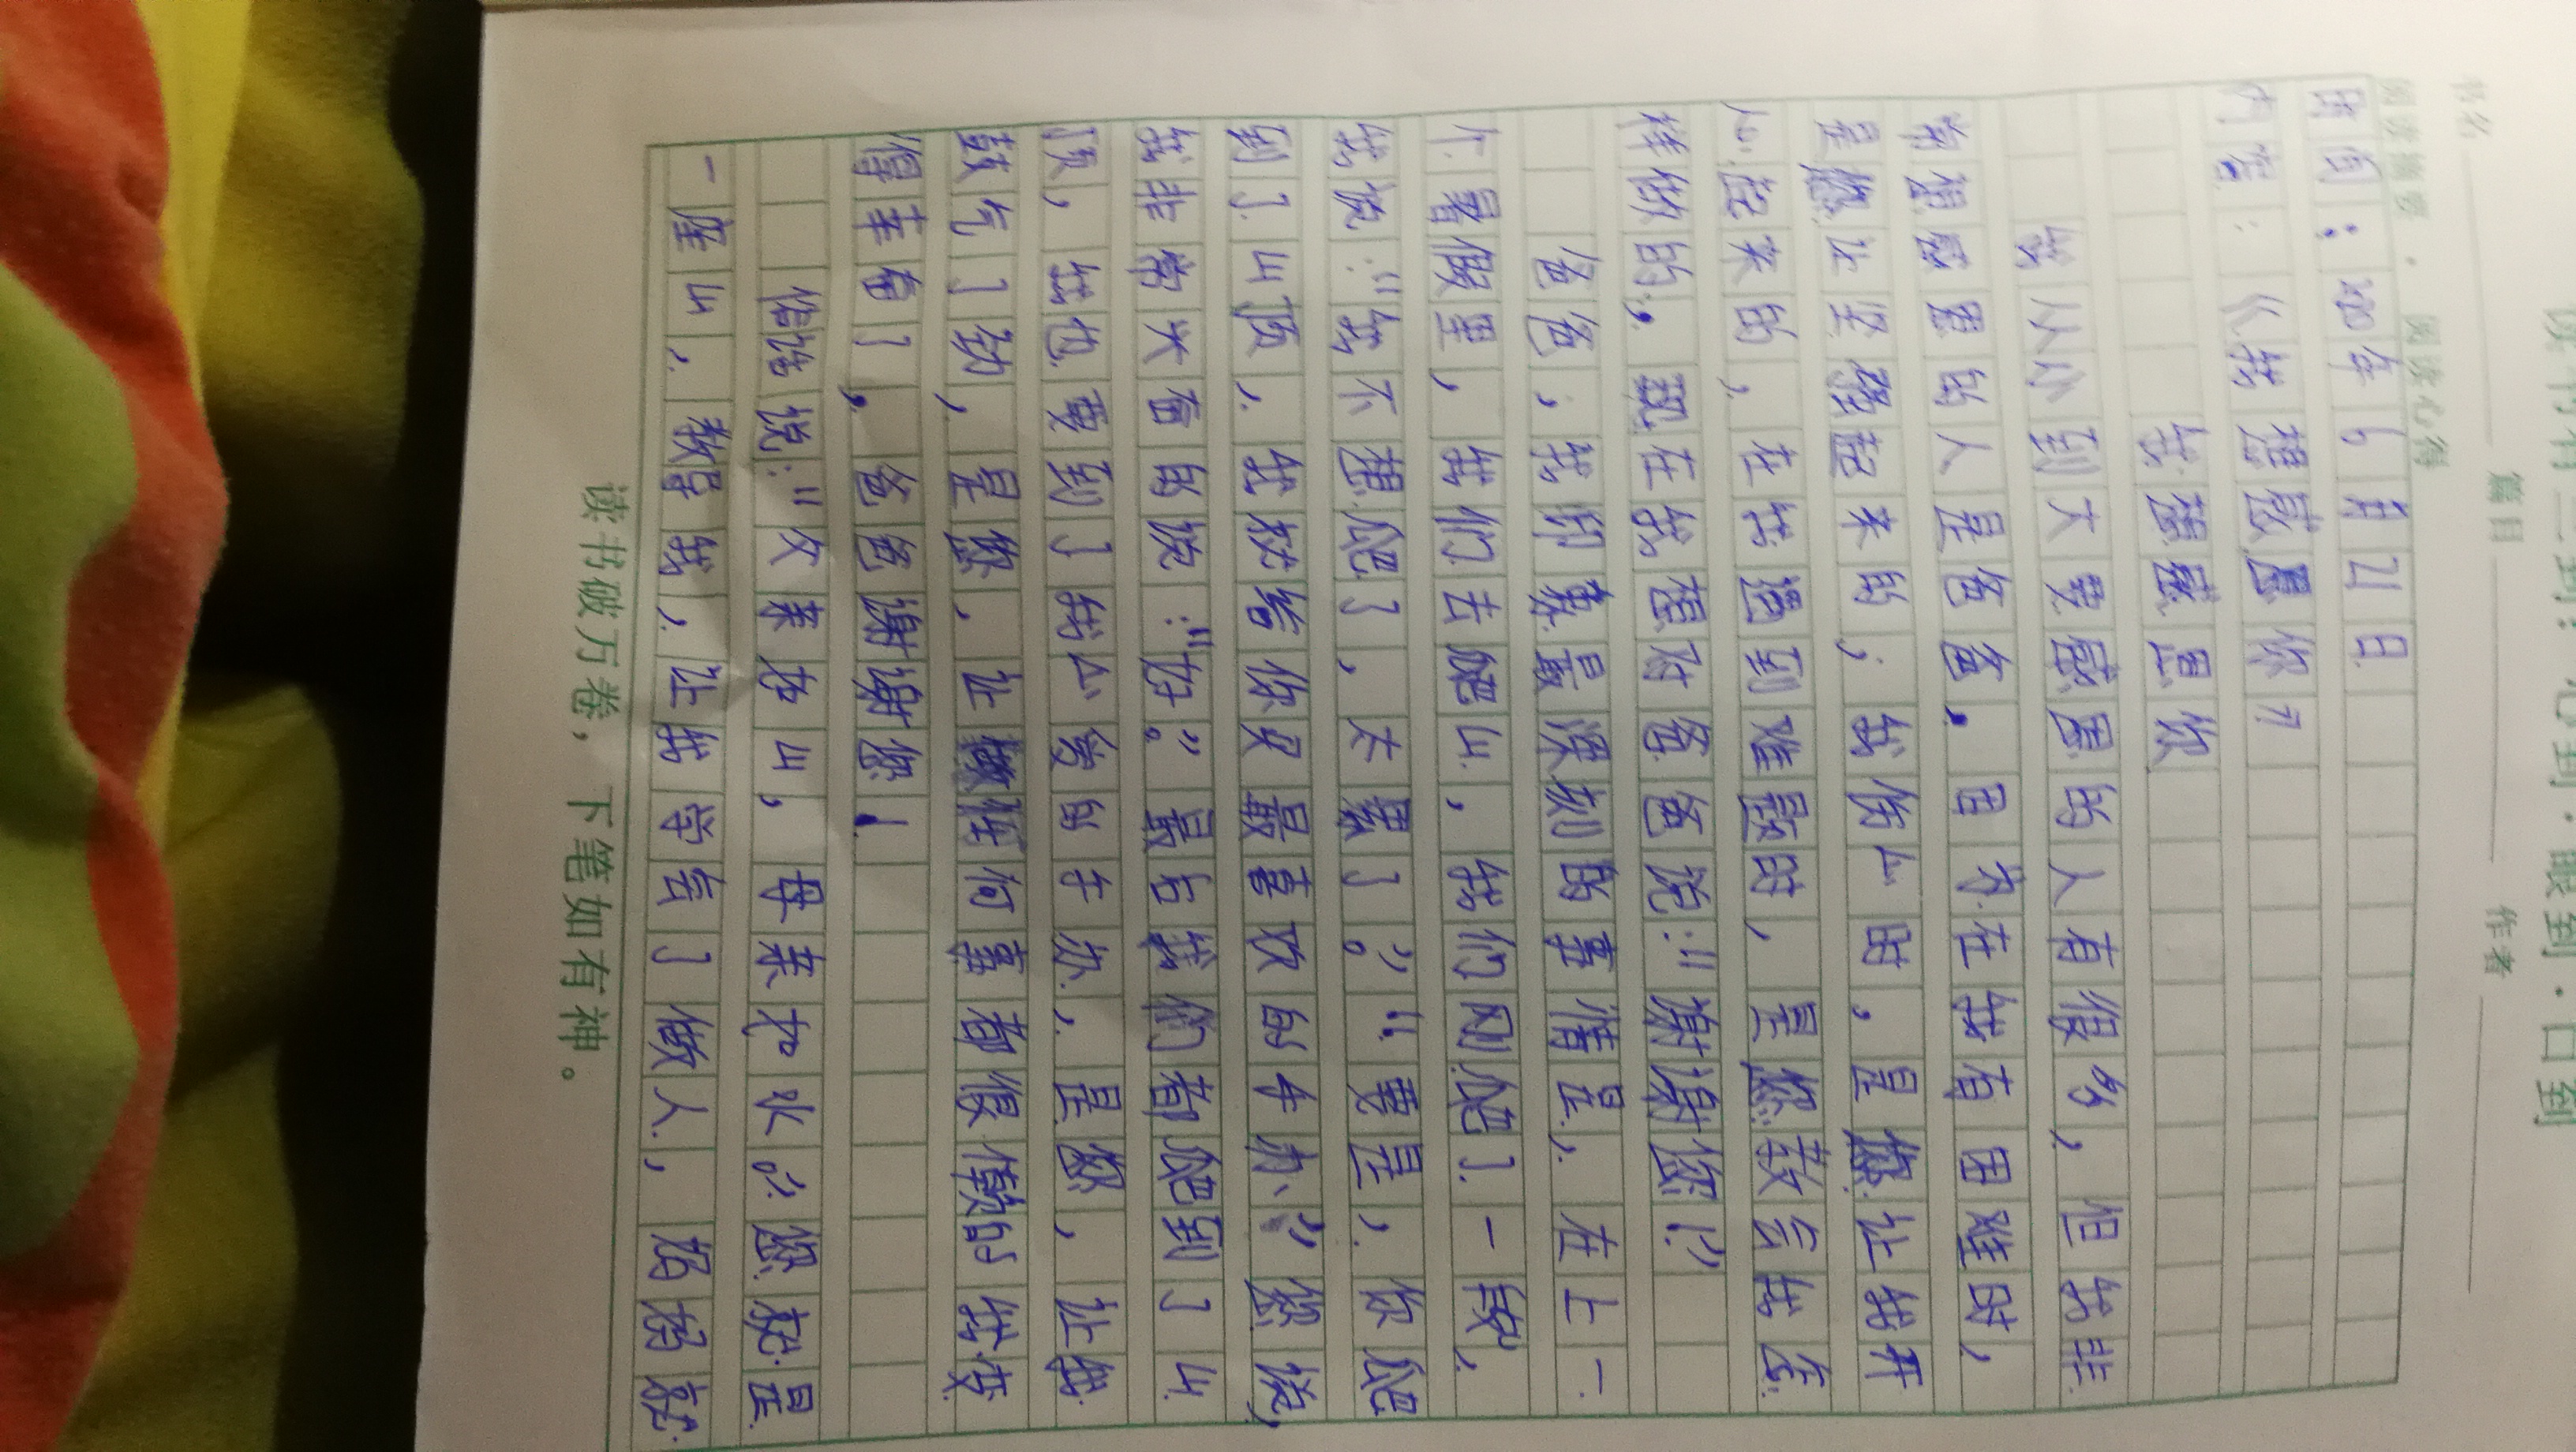 读书有三到：心到·眼到·口到
书名 篇目 作者
阅读摘要·阅读心得
时间：年6月21日
内容：《我想感恩你》
我想感恩你
我从小到大要感恩的人有很多，但我非
常想感恩的人是爸爸。每次在我有困难时，
是您让坚强起来的；我伤心时，是您让我开
心起来的，在我遇到难题时，是您教会我怎
样做的，现在我想对爸爸说：“谢谢您！”
爸爸，我印象最深刻的事情是，在上一
个暑假里，我们去爬山，我们刚爬了一段，
我说：“我不想爬了，太累了。”“要是，你爬
到了山顶，我就给你买最喜欢的手办”您说，
我非常兴奋的说：“好。”最后我们都爬到了山
顶，我也要到了我心爱的手办，是您，让我
鼓气了劲，是您，让任何事都很懒的我变
得幸奋了，爸爸谢谢您！
俗话说：“父亲如山，母亲如水。”您就是
一座山，教导我，让我学会了做人，爸爸就
读书破万卷，下笔如有神。